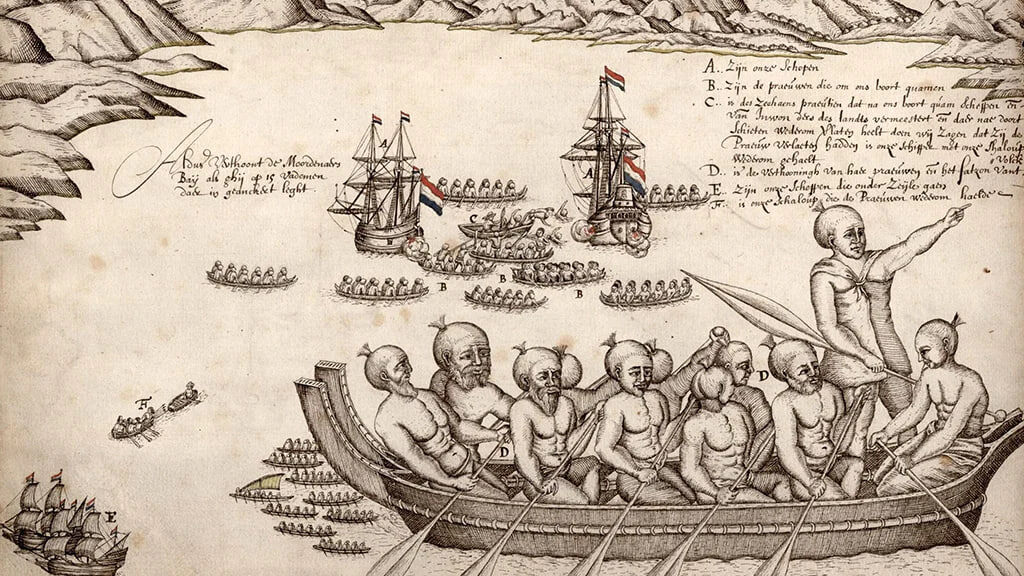 Aldus Verthoont de Moordenaers
Baij als ghij op 15 Vademen
daer in geanckert leght.
A.. Zijn onze Schepen
B.. Zijn de praeuwen die om ons boort quamen
C.. is des Zeehaens praeutien dat na ons boort quam scheppen en
van Inwon ders des landts vermeestert en daer nae door
Schieten Wederom Verlaten heeft doen wij Zagen dat Zij de
Praeuw Verlaeten hadden is onze Schipper met onze Chaloup
Wederom gehaelt
D.. is de Verthooningh van haer praeuwen en het fatzon Vant
Volck
E.. Zijn onze Scheepen die onder Zeijle gaen
F.. is onze Schaloup die de Praeuwen Wederom haelde
A
A
C
B
B
B
D
D
F
E